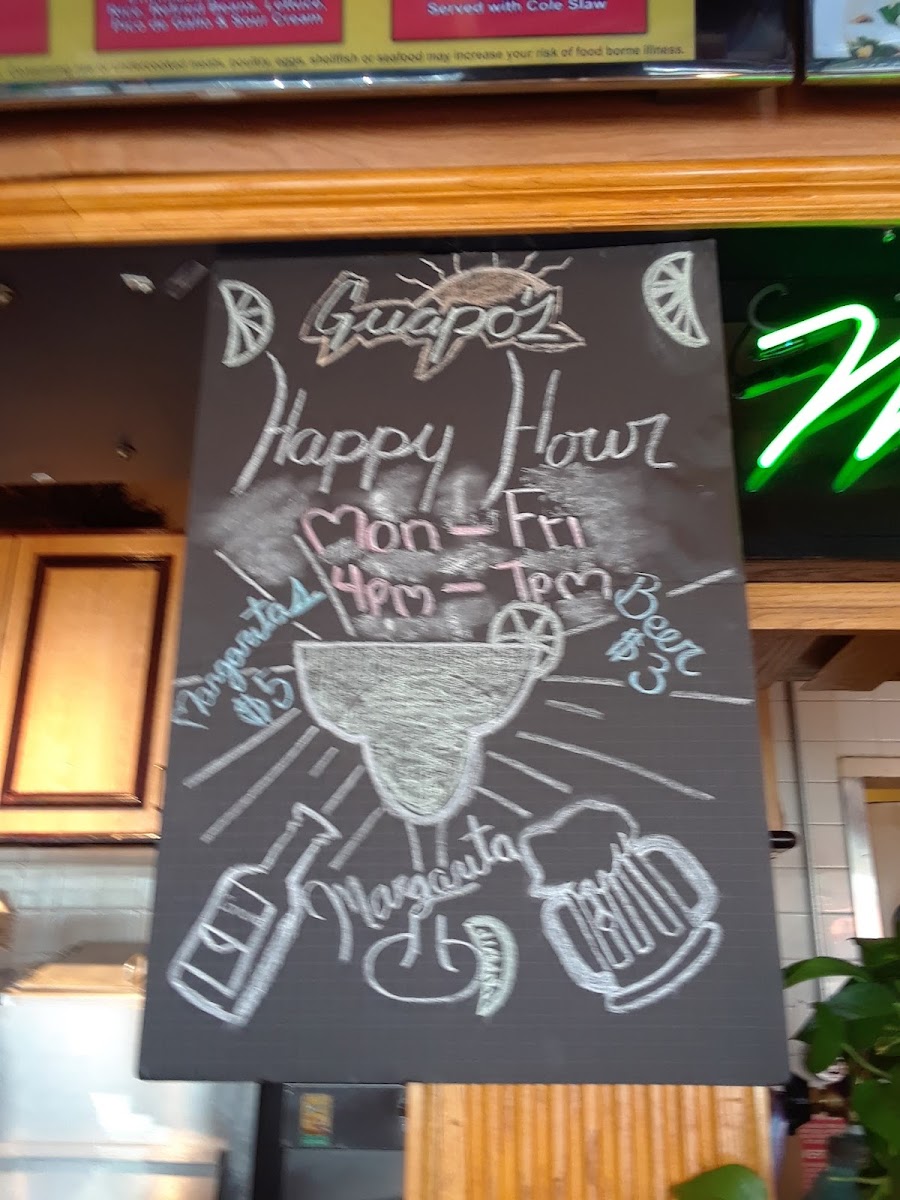 Rice, Refried Beans, Lettuce,
Pico de Gallo & Sour Cream
Served with Cole Slaw
meats, poultry, eggs, shellfish or seafood may increase your risk of food borne illness.
Guapo's
Happy Hour
Mon - Fri
4pm - 7pm
Margaritas
$5
Beer
$3
Margarita